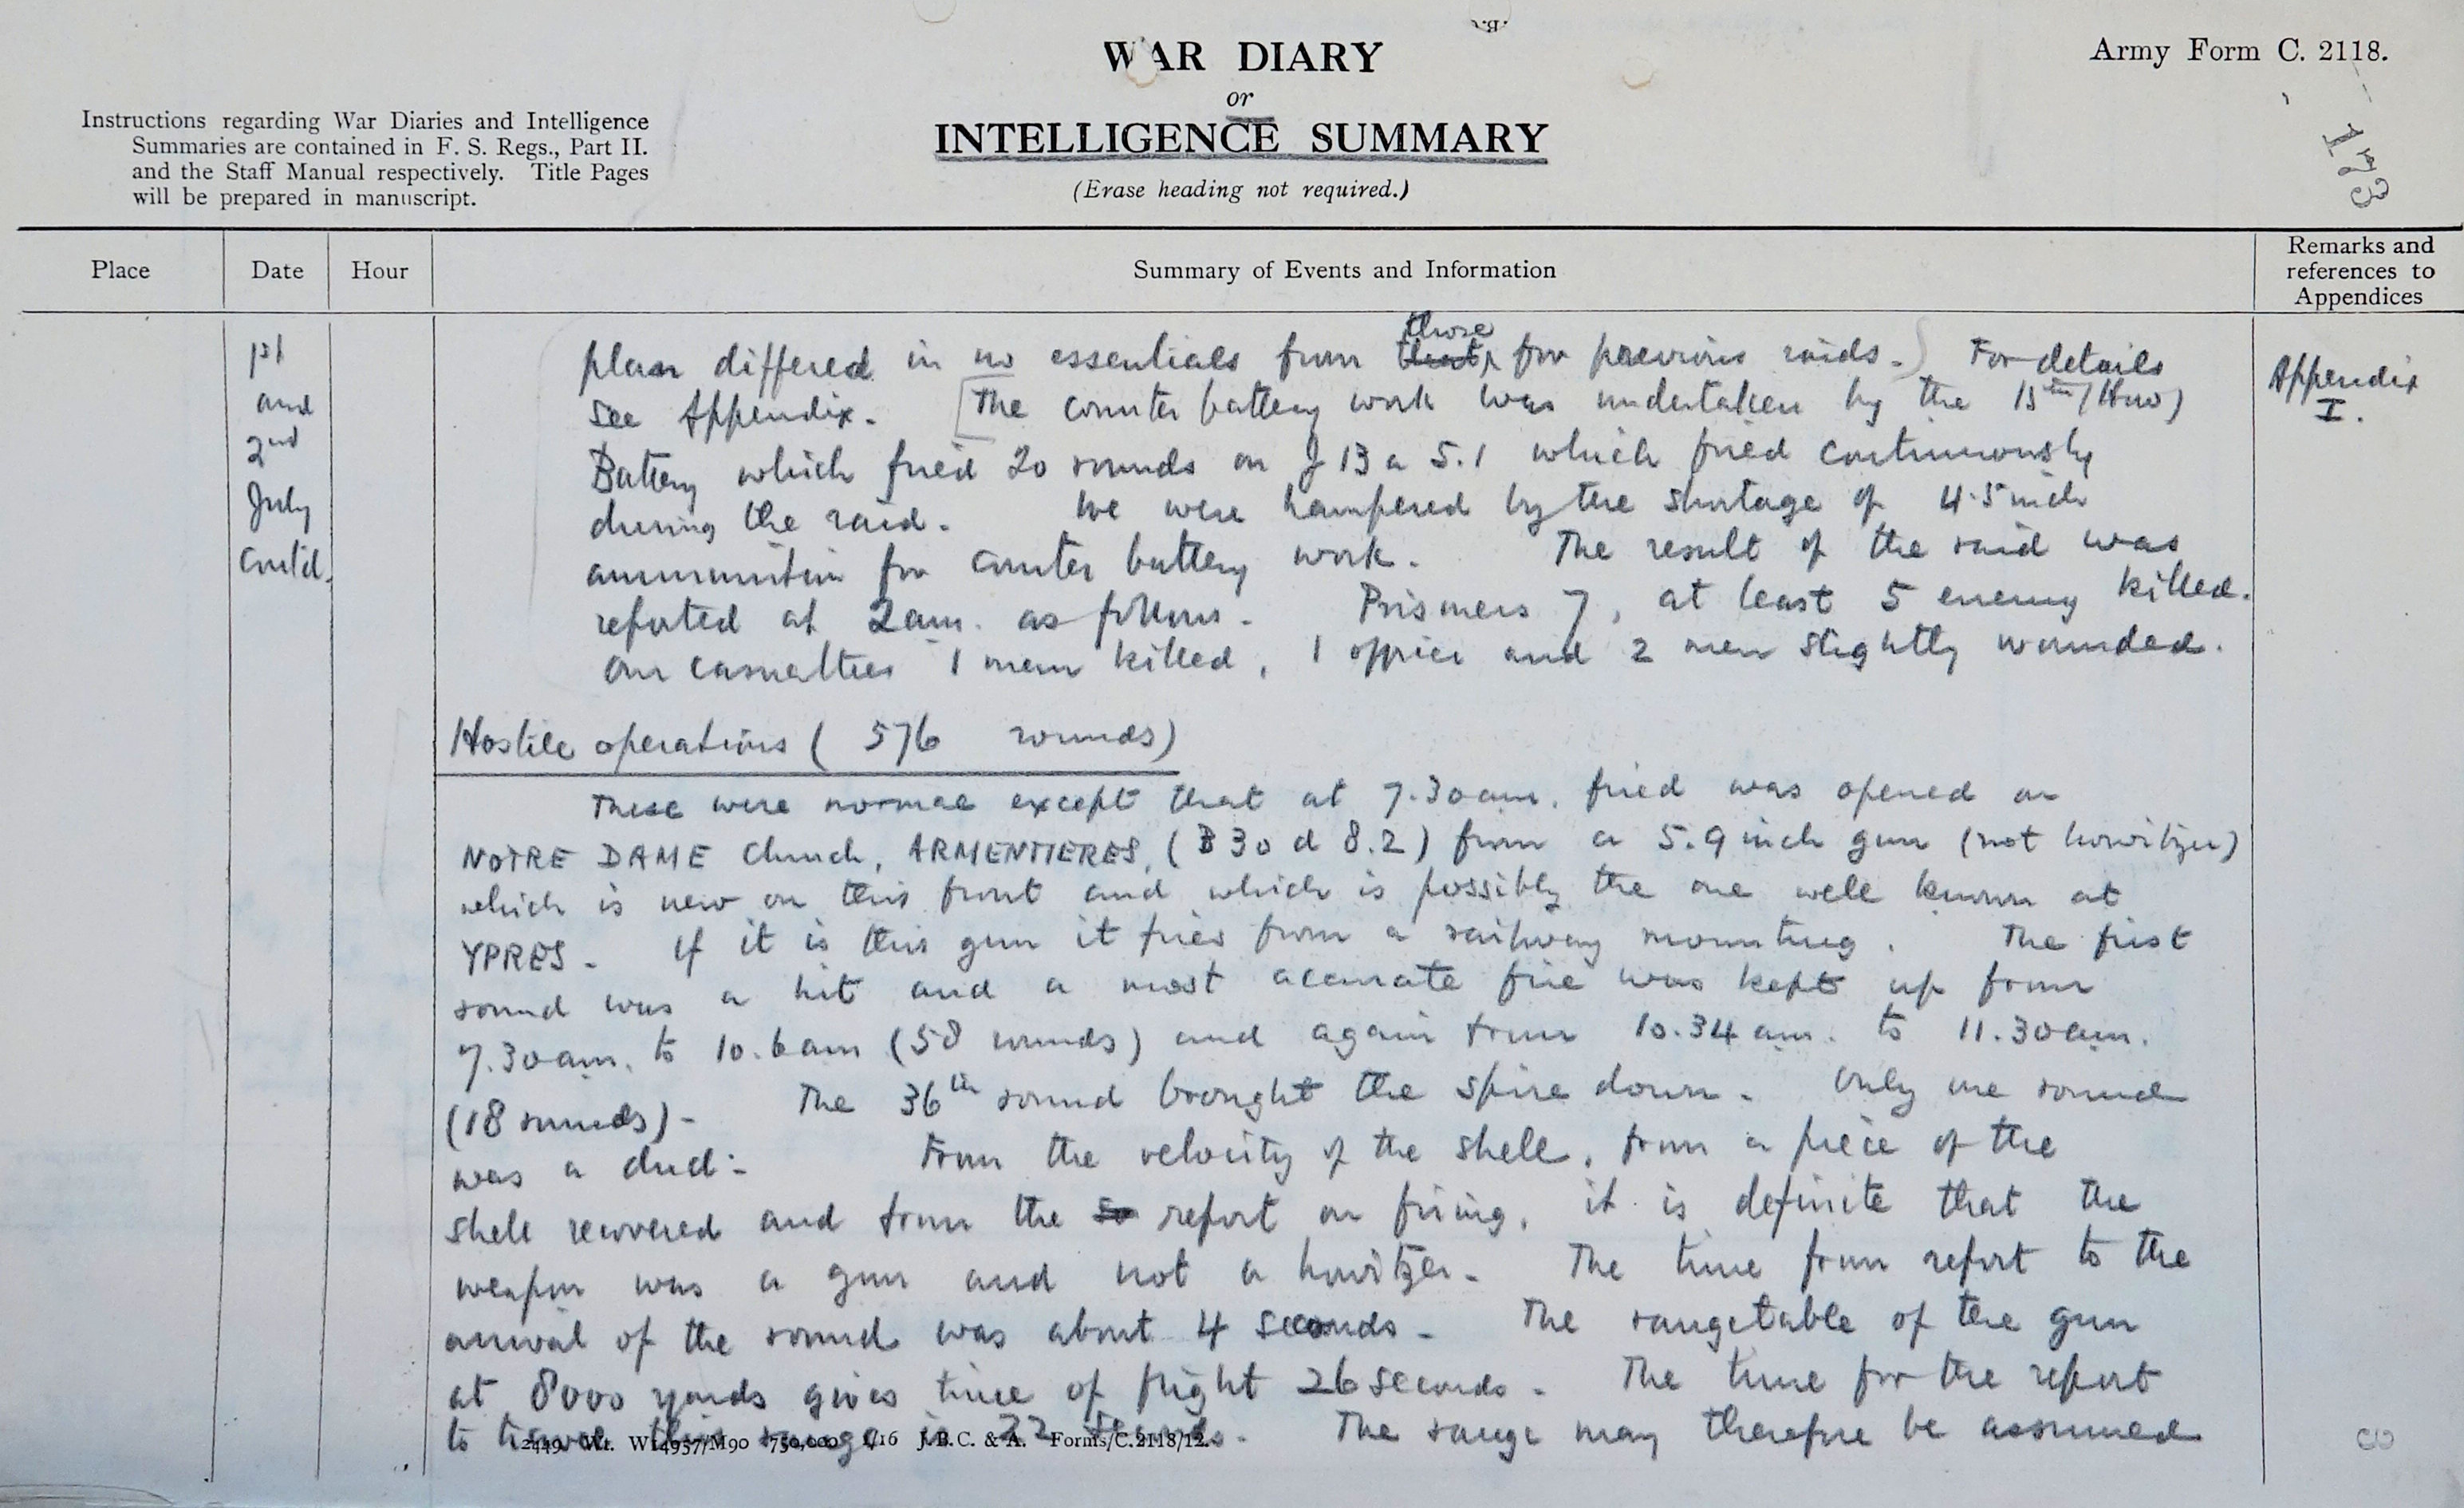 WAR DIARY
or
INTELLIGENCE SUMMARY
(Erase heading not required.)
Army Form C. 2118.
173
Instructions regarding War Diaries and Intelligence
Summaries are contained in F. S. Regs., Part II.
and the Staff Manual respectively. Title Pages
will be prepared in manuscript.
Place
Date
Hour
Summary of Events and Information
Remarks and
references to
Appendices
1st
and
2nd
July
Contd.
those
plan differed in no essentials from that, for previous raids.) For details
see Appendix. [The counter battery work was undertaken by the 15th (How)
Battery which fired 20 rounds on J 13 a 5.1 which fired continuously
during the raid. We were hampered by the shortage of 4.5 inch
ammunition for counter battery work. The result of the raid was
reported at 2am. as follows. Prisoners 7, at least 5 enemy killed.
Our casualties 1 man killed, 1 officer and 2 men slightly wounded.
Appendix
I.
Hostile operations ( 576 rounds)
These were normal except that at 7.30am. fired was opened on
NOTRE DAME Church, ARMENTIERES, (B 30 d 8.2) from a 5.9 inch gun (not howitzer)
which is new on this front and which is possibly the one well known at
YPRES. If it is this gun it fires from a railway mounting. The first
round was a hit and a most accurate fire was kept up from
7.30am. to 10.6am (58 rounds) and again from 10.34 am. to 11.30am.
(18 rounds). The 36th round brought the spire down. Only one round
was a dud. From the velocity of the shell, from a piece of the
shell recovered and from the so report on firing, it is definite that the
weapon was a gun and not a howitzer. The time from report to the
arrival of the round was about 4 seconds. The rangetable of the gun
at 8000 yards gives time of flight 26 seconds. The time for the report
to travel this range is 22 seconds. The range may therefore be assumed
2449 Wt. W14957/M90 750,000 1/16 J.B.C. & A. Forms/C.2118/12.